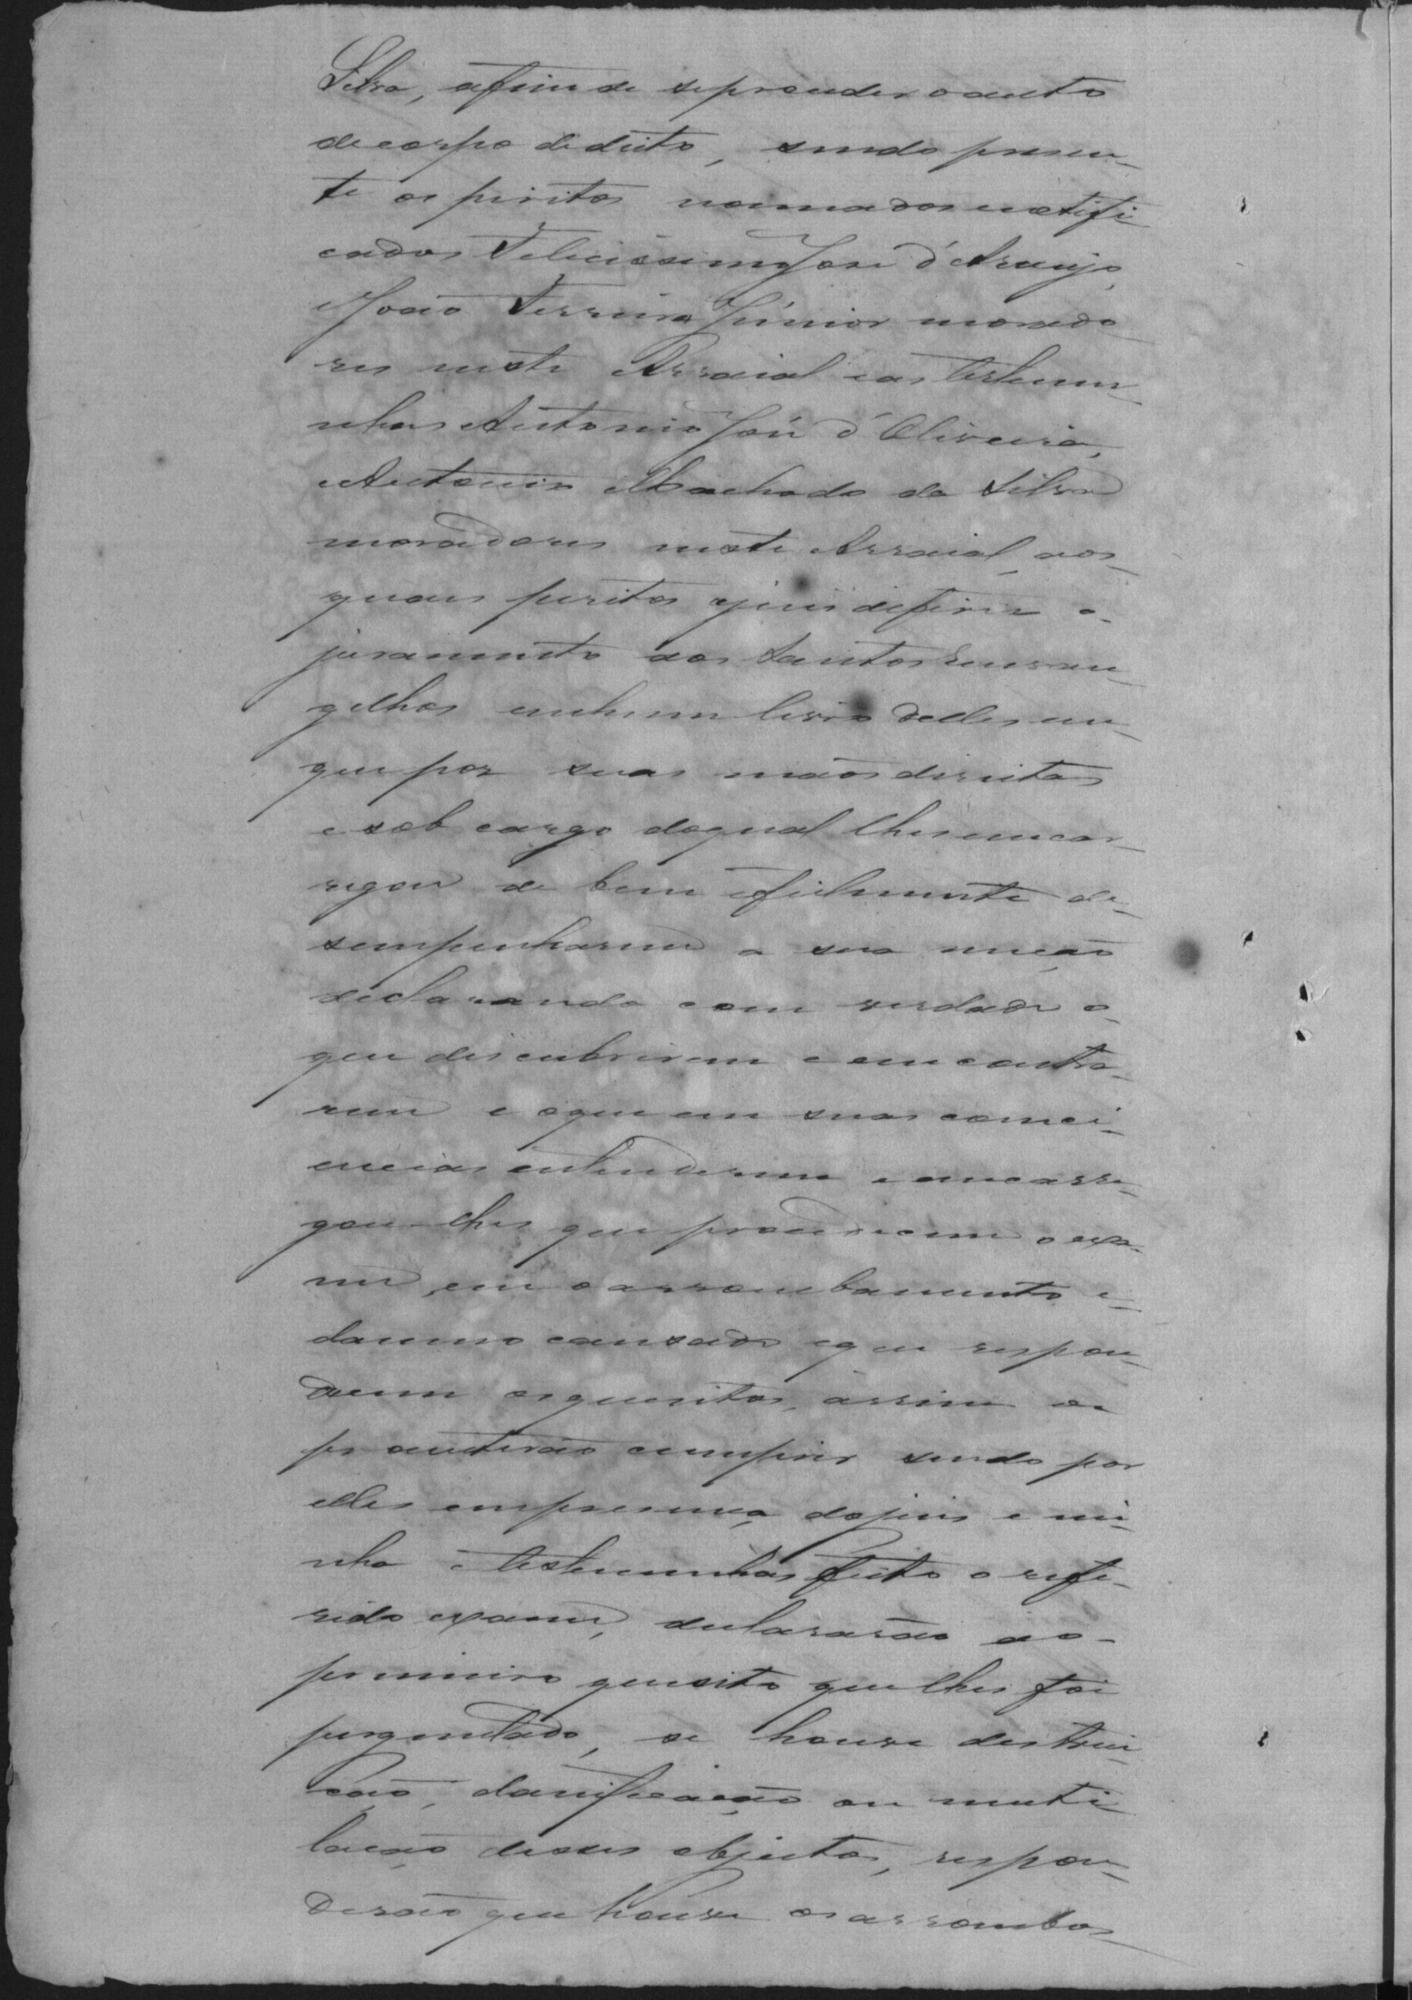 Silva, afim de se proceder o auto
de corpo de delicto, sendo presen-
te os peritos nomeados e notifi
cados Felicissimo José d'Araujo,
e João Ferreira Júnior morado
res neste Arraial e as testemu-
nhas Antonio José d'Oliveira,
e Antonio Machado da Silva
moradores neste Arraial, aos-
quaes peritos o juis deferio o-
juramento aos Santos Evan-
gelhos em hum livro delles em
que por suas mãos direitas
e sob cargo do qual lhes encar-
regou de bem e fielmente de-
sempenharem a sua missão
declarando com verdade o-
que descubrirem e encontra-
rem e o que em suas consci-
encias entenderem e encarre-
gou-lhes que procedecem o exa-
me em o arrombamento e-
damno causado e que respon-
decem os quesitos, assim os
prometerão cumprir sendo por
elles em presença do juis e mi-
nha e testemunhas feito o refe-
rido exame, declararão ao-
primeiro quesito que lhes foi
perguntado, se houve destrui-
ção, danificação ou muti-
lação desses objectos, respon-
derão que houve os arrombos